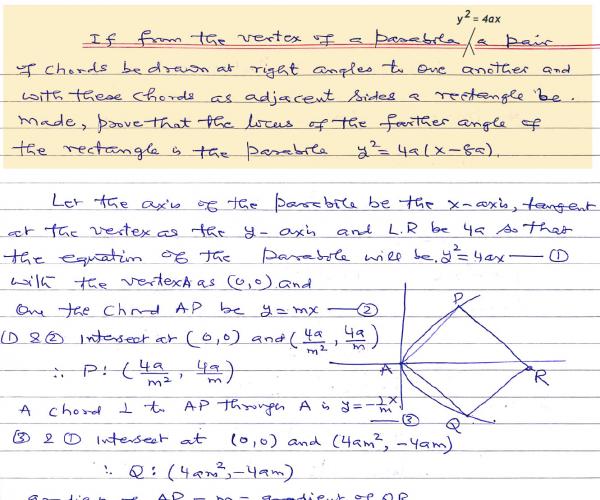 y² = 4ax
If from the vertex of a parabola / a pair
of chords be drawn at right angles to one another and
with these chords as adjacent sides a rectangle be.
made, prove that the locus of the farther angle of
the rectangle is the parabola y² = 4a(x-8a).
Let the axis of the parabola be the x-axis, tangent
at the vertex as the y-axis and L.R be 4a so that
the equation of the parabola will be, y² = 4ax — ①
with the vertex A as (0,0) and
One the chord AP be y = mx — ②
① & ② Intersect at (0,0) and (4a/m², 4a/m)
∴ P: (4a/m², 4a/m)
A chord ⊥ to AP through A is y = -1/m x. — ③
③ & ① Intersect at (0,0) and (4am², -4am)
∴ Q: (4am², -4am)
gradient of AP = m = gradient of QR
P
A
R
Q